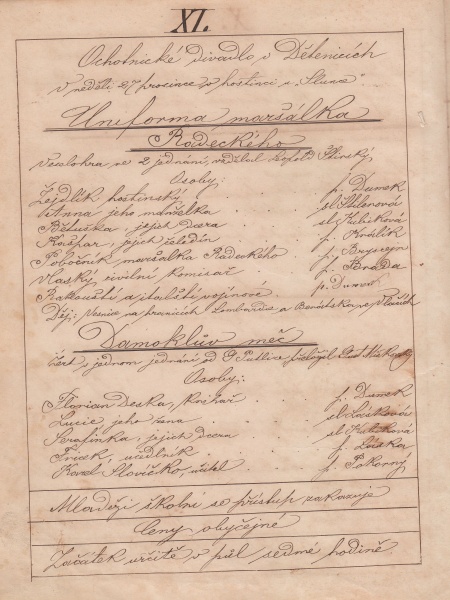 XI.
Ochotnické divadlo v Dětenicích
V neděli 27 prosince v hostinci u „Slunce"
Uniforma maršálka
Radeckého
Veselohra ve 2 jednání, vzdělal Leopold Štirský
Osoby:
Zejdlík hostinský . . . p. Dumek
Anna jeho manželka . . . sl.
Bětuška, jejich dcera . . . sl. Kubíková
Kašpar, jejich čeledín . . . p. Králík
Pobočník maršálka Radeckého . p.
Vlaský civilní komisař . . . p. Brada
Rakouští a italští vojínové . . p. Dumek
Děj: Vesnice na hranicích Lombardie a Benátska ve Vlaších
Damoklův meč
Žert v jednom jednání od G. Putlice přeložil
Osoby:
Florian Decka, knihař . . p. Dumek
Lucie jeho žena . . . sl. Lásková
Serafinka, jejich dcera . . sl. Kubíková
Fricek, učedlník . . . p. Láska
Karel Slovíčko, učitel . . p. Pokorný
Mládeži školní se přístup zakazuje
Ceny obyčejné
Začátek určitě v půl sedmé hodině